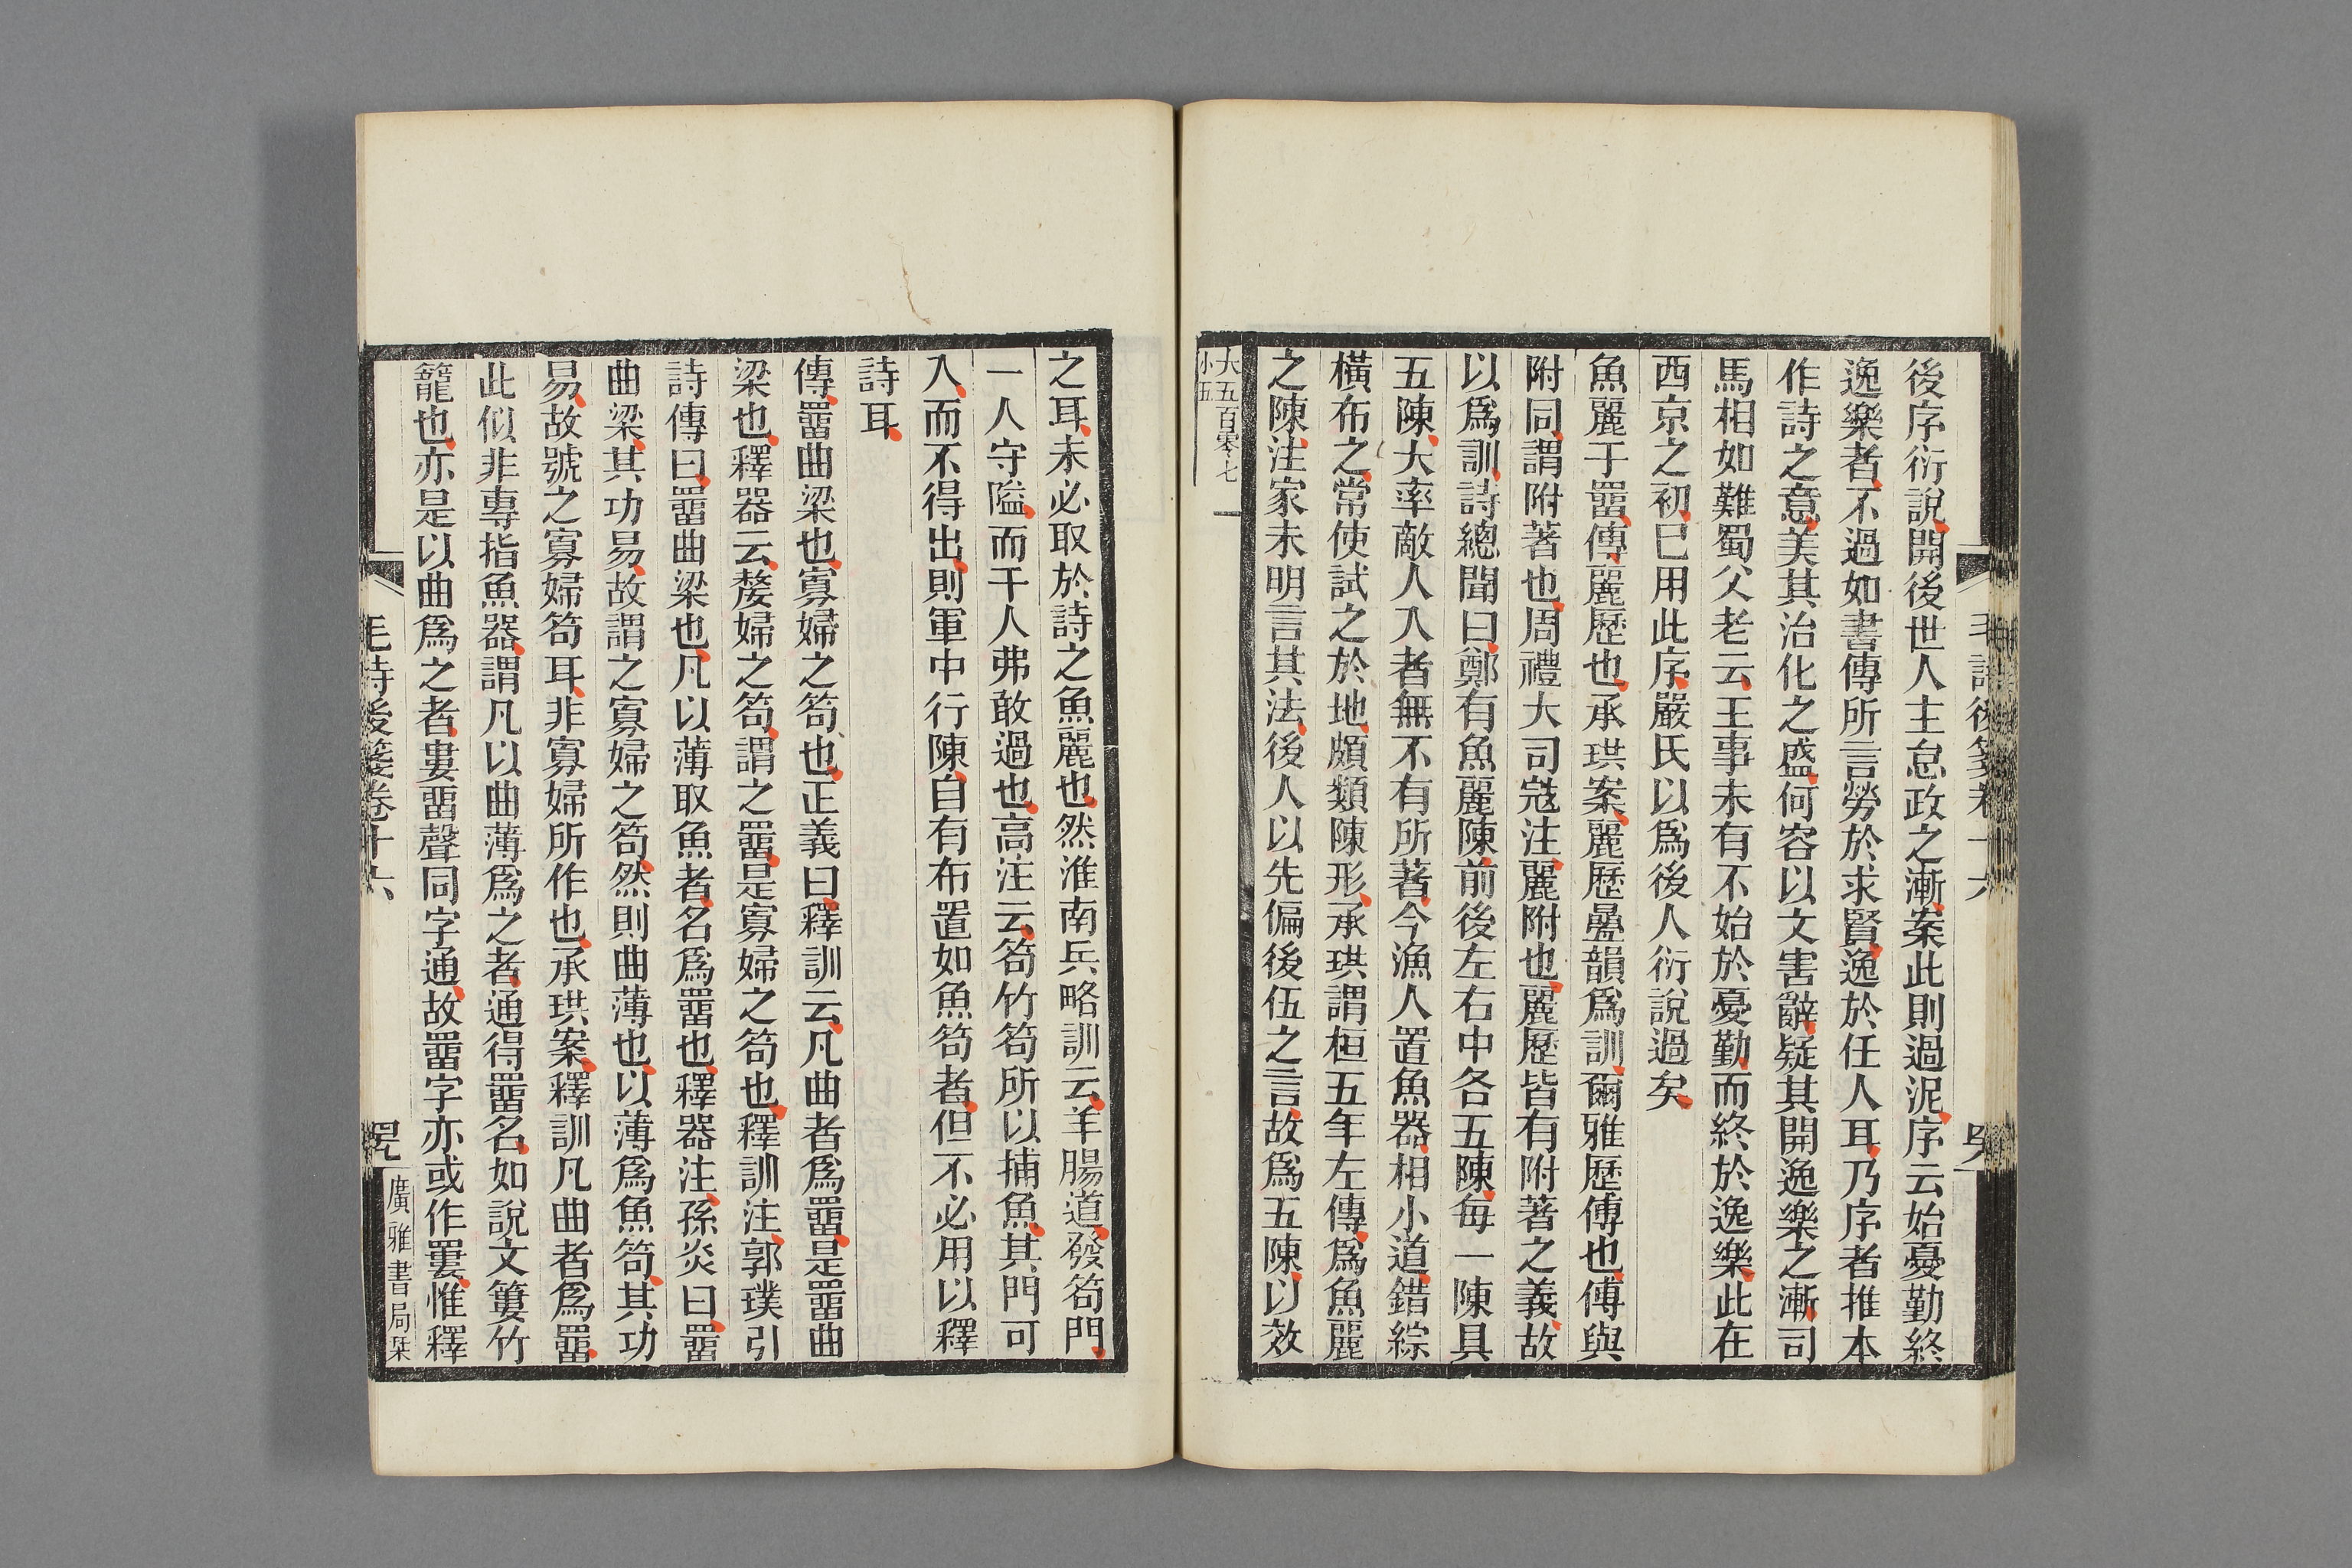 後序衍說開後世人主怠政之漸案此則過泥序云始憂勤終
逸樂者不過如書傳所言勞於求賢逸於任人耳乃序者推本
作詩之意美其治化之盛何容以文害辭疑其開逸樂之漸司
馬相如難蜀父老云王事未有不始於憂勤而終於逸樂此在
西京之初已用此序嚴氏以爲後人衍說過矣
魚麗于罶傳麗歷也承珙案麗歷曡韻爲訓爾雅歷傅也傅與
附同謂附著也周禮大司寇注麗附也麗歷皆有附著之義故
以爲訓詩總聞曰鄭有魚麗陳前後左右中各五陳每一陳具
五陳大率敵人入者無不有所著今漁人置魚器相小道錯綜
橫布之常使試之於地頗類陳形承珙謂桓五年左傳爲魚麗
之陳注家未明言其法後人以先偏後伍之言故爲五陳以效
大五百零七
小五
之耳未必取於詩之魚麗也然淮南兵略訓云羊腸道發笱門
一人守隘而千人弗敢過也高注云笱竹笱所以捕魚其門可
入而不得出則軍中行陳自有布置如魚笱者但不必用以釋
詩耳
傳罶曲梁也寡婦之笱也正義曰釋訓云凡曲者爲罶是罶曲
梁也釋器云嫠婦之笱謂之罶是寡婦之笱也釋訓注郭璞引
詩傳曰罶曲梁也凡以薄取魚者名爲罶也釋器注孫炎曰罶
曲梁其功易故謂之寡婦之笱然則曲薄也以薄爲魚笱其功
易故號之寡婦笱耳非寡婦所作也承珙案釋訓凡曲者爲罶
此似非專指魚器謂凡以曲薄爲之者通得罶名如說文簍竹
籠也亦是以曲爲之者婁畱聲同字通故罶字亦或作䍣惟釋
毛詩後箋卷十六
廣雅書局栞